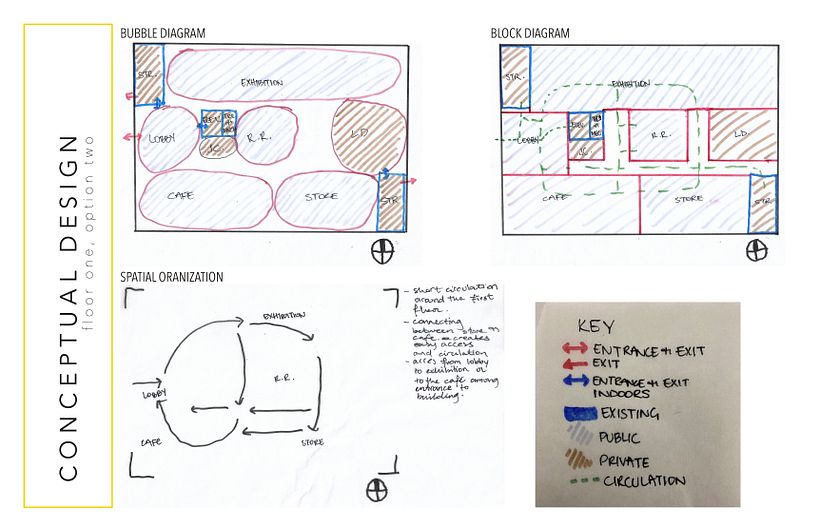 CONCEPTUAL DESIGN
floor one, option two
BUBBLE DIAGRAM
STR.
EXHIBITION
LOBBY
ELEV.
J.C.
R.R.
L.D.
CAFE
STORE
STR.
BLOCK DIAGRAM
STR.
EXHIBITION
LOBBY
ELEV.
J.C.
R.R.
L.D.
CAFE
STORE
STR.
SPATIAL ORANIZATION
EXHIBITION
R.R.
LOBBY
CAFE
STORE
- short circulation
around the first
floor.
- connecting
between store &
cafe creates
easy access
and circulation
- acces from lobby
to exhibition or
to the cafe among
entrance to
building.
KEY
ENTRANCE & EXIT
EXIT
ENTRANCE & EXIT
INDOORS
EXISTING
PUBLIC
PRIVATE
CIRCULATION